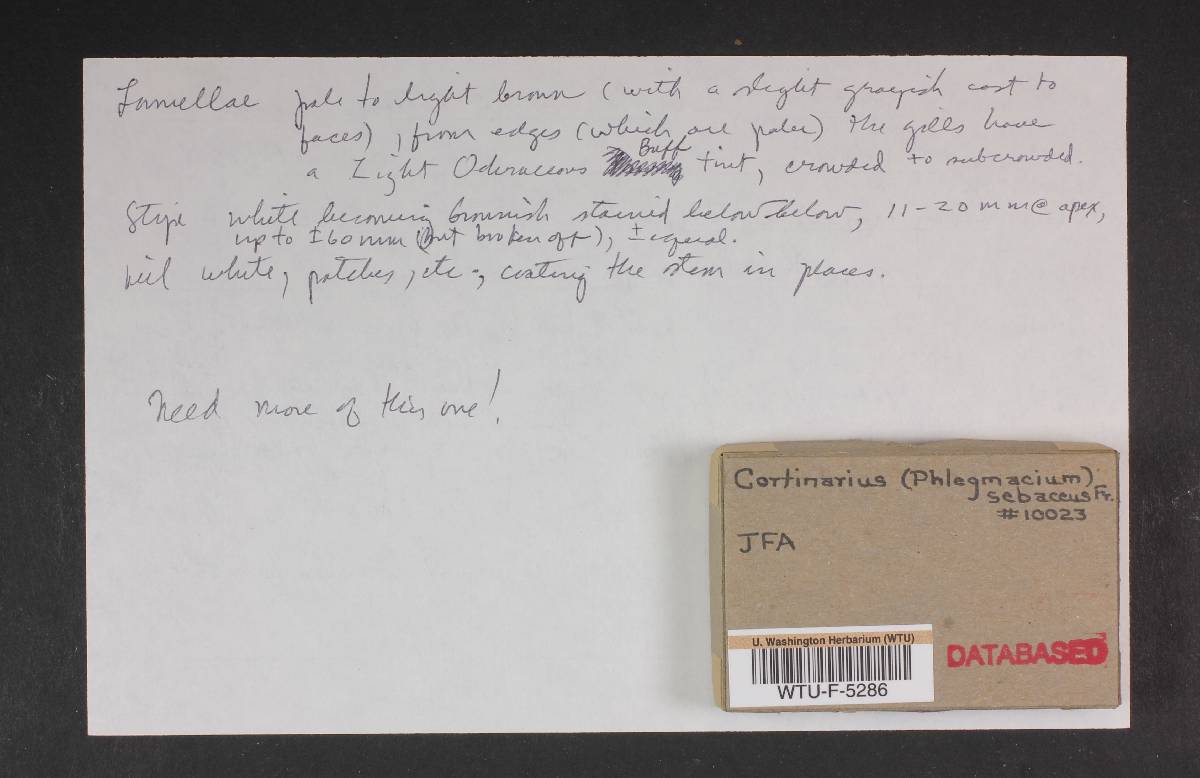 Lamellae pale to light brown (with a slight grayish cast to
faces), from edges (which are paler) the gills have
a Light Ochraceous Buff tint, crowded to subcrowded.
Stipe white becoming brownish stained below below, 11-20 mm @ apex,
up to ±60 mm (but broken off), ± equal.
Veil white, patches, etc., coating the stem in places.
Need more of this one!
Cortinarius (Phlegmacium)
sebaceus Fr.
#10023
JFA
U. Washington Herbarium (WTU)
WTU-F-5286
DATABASED